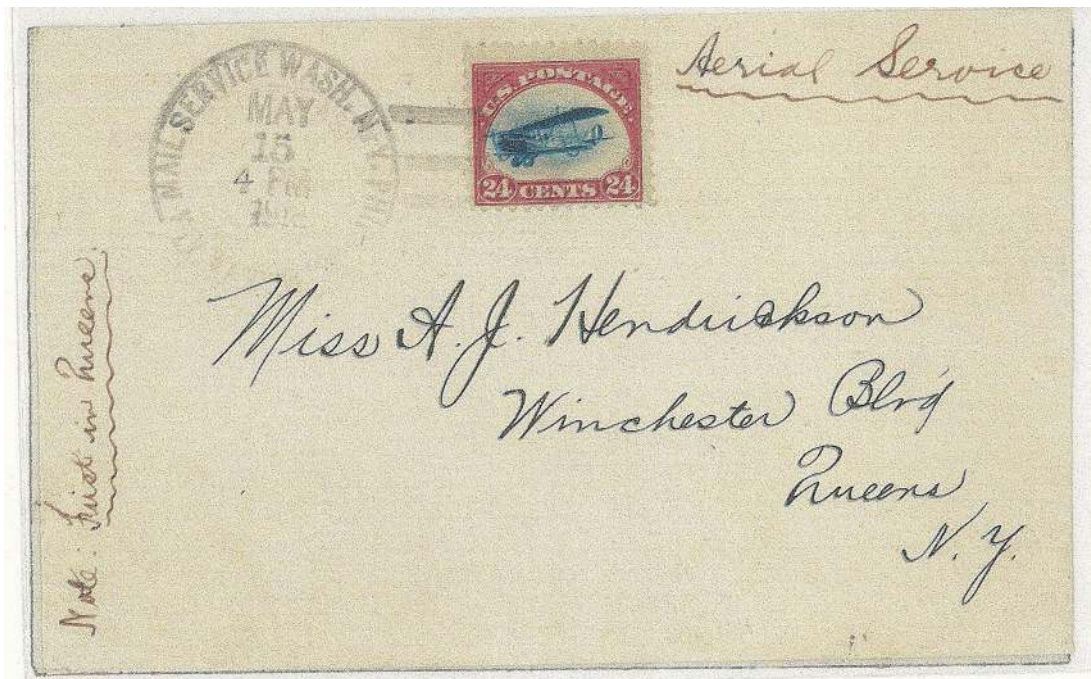 MAIL SERVICE WASH. N.Y.
MAY
15
4 PM
U.S. POSTAGE
24 CENTS 24
Aerial Service
Miss A. J. Hendrickson
Winchester Blvd
Queens
N. Y.
Note: First in Queens